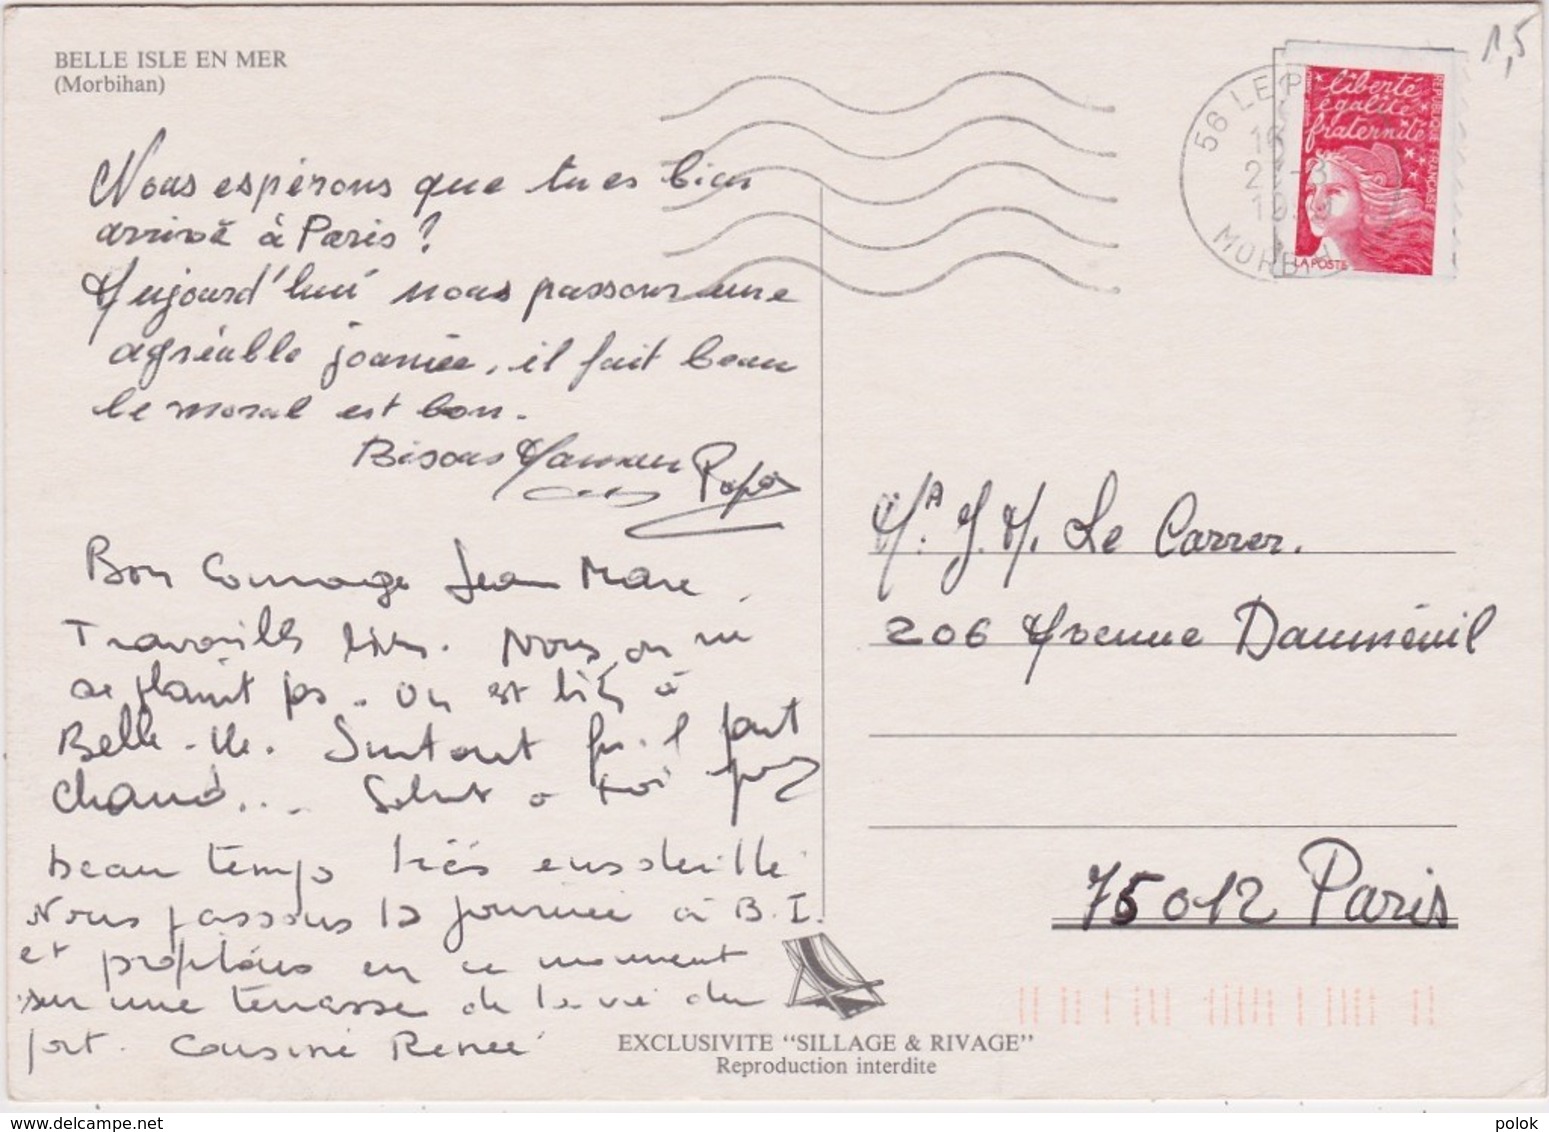 BELLE ISLE EN MER
(Morbihan)
1,5
56 LE P
16
1999
MORBIH
liberté
égalité
fraternité
REPUBLIQUE FRANÇAISE
LA POSTE
Nous espérons que tu es bien
arrivé à Paris ?
Aujourd'hui nous passons une
agréable journée, il fait beau
le moral est bon.
Bisous Maman Papa
Bon Courage Jean Marc.
Travaille bien. Nous, on ne
se plaint pas. On est bien à
Belle-Ile. Surtout qu'il fait
chaud... Salut à toi
beau temps très ensoleillé
Nous passons la journée à B.I.
et profitons en ce moment
sur une terrasse de la vue du
port. Cousine Renée
Mr. J.M. Le Carrer.
206 Avenue Dauménil
75012 Paris
EXCLUSIVITE "SILLAGE & RIVAGE"
Reproduction interdite
www.delcampe.net
polok